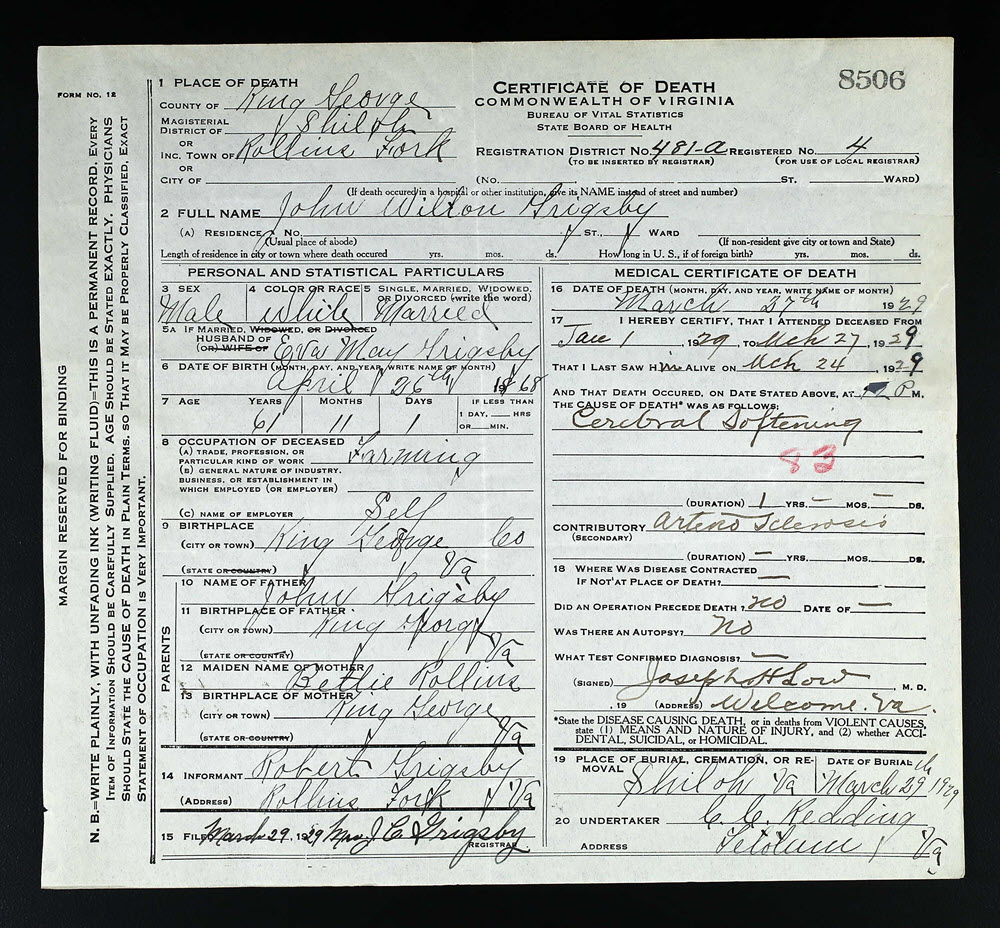 8506
FORM NO. 12
MARGIN RESERVED FOR BINDING
N. B.=WRITE PLAINLY, WITH UNFADING INK (WRITING FLUID)=THIS IS A PERMANENT RECORD. EVERY
ITEM OF INFORMATION SHOULD BE CAREFULLY SUPPLIED. AGE SHOULD BE STATED EXACTLY. PHYSICIANS
SHOULD STATE THE CAUSE OF DEATH IN PLAIN TERMS, SO THAT IT MAY BE PROPERLY CLASSIFIED. EXACT
STATEMENT OF OCCUPATION IS VERY IMPORTANT.
1 PLACE OF DEATH
COUNTY OF King George
MAGISTERIAL
DISTRICT OF Shiloh
OR
INC. TOWN OF Rollins Fork
OR
CITY OF
CERTIFICATE OF DEATH
COMMONWEALTH OF VIRGINIA
BUREAU OF VITAL STATISTICS
STATE BOARD OF HEALTH
REGISTRATION DISTRICT No. 481-a REGISTERED No. 4
(TO BE INSERTED BY REGISTRAR) (FOR USE OF LOCAL REGISTRAR)
(No. ST. WARD)
(If death occured in a hospital or other institution, give its NAME instead of street and number)
2 FULL NAME John Wilton Grigsby
(A) RESIDENCE No. ST., WARD
(Usual place of abode) (If non-resident give city or town and State)
Length of residence in city or town where death occured yrs. mos. ds. How long in U. S., if of foreign birth? yrs. mos. ds.
PERSONAL AND STATISTICAL PARTICULARS
3 SEX 4 COLOR OR RACE 5 SINGLE, MARRIED, WIDOWED,
OR DIVORCED (write the word)
Male White Married
5A IF MARRIED, WIDOWED, OR DIVORCED
HUSBAND OF
(OR) WIFE OF Eva May Grigsby
6 DATE OF BIRTH (MONTH, DAY, AND YEAR, WRITE NAME OF MONTH)
April 26th 1868
7 AGE YEARS MONTHS DAYS IF LESS THAN
1 DAY, HRS
OR MIN.
61 11 1
8 OCCUPATION OF DECEASED
(A) TRADE, PROFESSION, OR
PARTICULAR KIND OF WORK Farming
(B) GENERAL NATURE OF INDUSTRY,
BUSINESS, OR ESTABLISHMENT IN
WHICH EMPLOYED (OR EMPLOYER)
(C) NAME OF EMPLOYER Self
9 BIRTHPLACE
(CITY OR TOWN) King George Co
(STATE OR COUNTRY) Va
PARENTS
10 NAME OF FATHER John Grigsby
11 BIRTHPLACE OF FATHER
(CITY OR TOWN) King George
(STATE OR COUNTRY) Va
12 MAIDEN NAME OF MOTHER Bettie Rollins
13 BIRTHPLACE OF MOTHER
(CITY OR TOWN) King George
(STATE OR COUNTRY) Va
14 INFORMANT Robert Grigsby
(ADDRESS) Rollins Fork Va
15 FILED March 29, 1929 Mrs J C Grigsby
REGISTRAR
MEDICAL CERTIFICATE OF DEATH
16 DATE OF DEATH (MONTH, DAY, AND YEAR, WRITE NAME OF MONTH)
March 27th 1929
17 I HEREBY CERTIFY, THAT I ATTENDED DECEASED FROM
Jan 1, 1929, TO Mch 27, 1929
THAT I LAST SAW HIM ALIVE ON Mch 24, 1929
AND THAT DEATH OCCURED, ON DATE STATED ABOVE, AT P M.
THE CAUSE OF DEATH* WAS AS FOLLOWS:
Cerebral Softening
83
(DURATION) 1 YRS. — MOS. — DS.
CONTRIBUTORY Arterio Sclerosis
(SECONDARY)
(DURATION) — YRS. MOS. DS.
18 WHERE WAS DISEASE CONTRACTED
IF NOT AT PLACE OF DEATH? —
DID AN OPERATION PRECEDE DEATH? no DATE OF —
WAS THERE AN AUTOPSY? No
WHAT TEST CONFIRMED DIAGNOSIS? —
(SIGNED) Joseph H Low, M. D.
, 19 (ADDRESS) Welcome. Va.
*State the DISEASE CAUSING DEATH, or in deaths from VIOLENT CAUSES,
state (1) MEANS AND NATURE OF INJURY, and (2) whether ACCI-
DENTAL, SUICIDAL, or HOMICIDAL.
19 PLACE OF BURIAL, CREMATION, OR RE-
MOVAL DATE OF BURIAL
Shiloh Va March 29th 1929
20 UNDERTAKER C. C. Redding
ADDRESS Va